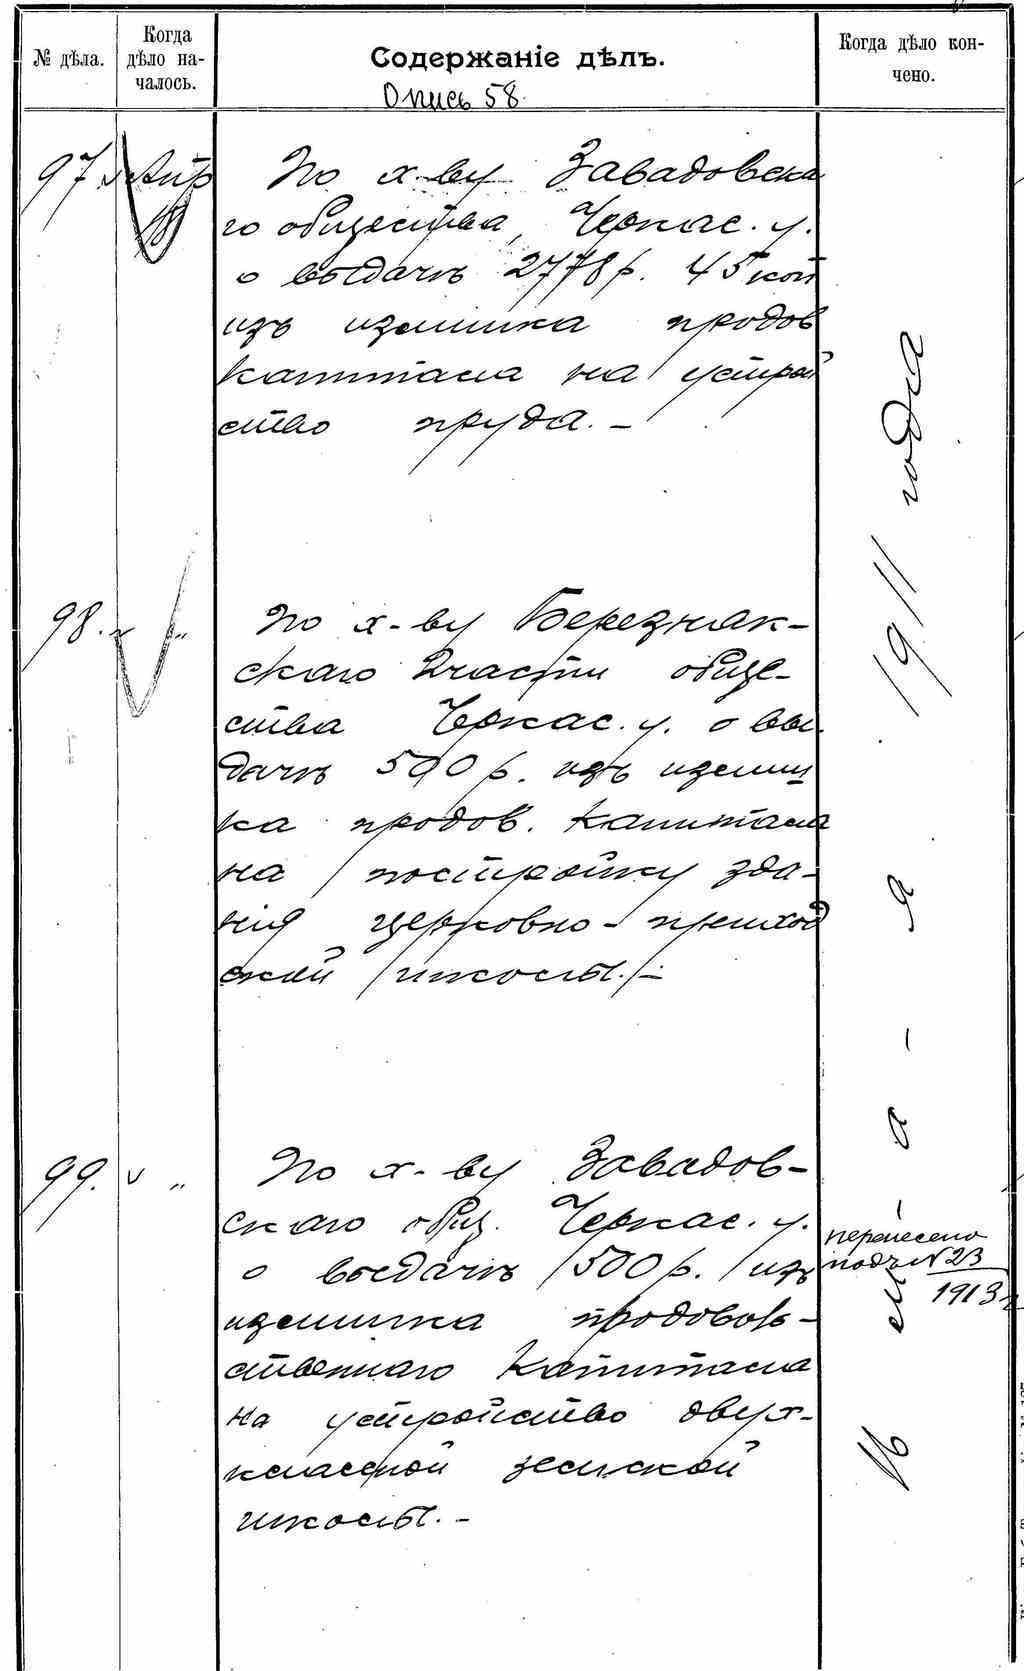 № дѣла.
Когда
дѣло на-
чалось.
Содержаніе дѣлъ.
Когда дѣло кон-
чено.
Опись 58.
97 Апр
18
По х-ву Завадовска
го общества, Черкас. у.
о выдачѣ 2778 р. 45 коп
изъ излишка продов
капитала на устрой
ство пруда. –
98. " "
По х-ву Березняк-
скаго 2 части обще-
ства Черкас. у. о вы-
дачѣ 500 р. изъ излиш
ка продов. капитала
на постройку зда-
нія церковно-приход
ской школы. –
99. "
По х-ву Завадов-
скаго общ. Черкас. у.
о выдачѣ 1500 р. изъ
излишка продоволь-
ственнаго капитала
на устройство двух-
классной земской
школы. –
М-а-я 1911 года
перенесено
подъ N 23
1913 г